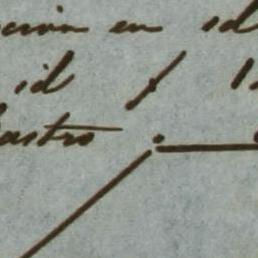 cion en id
id f 1
astro .